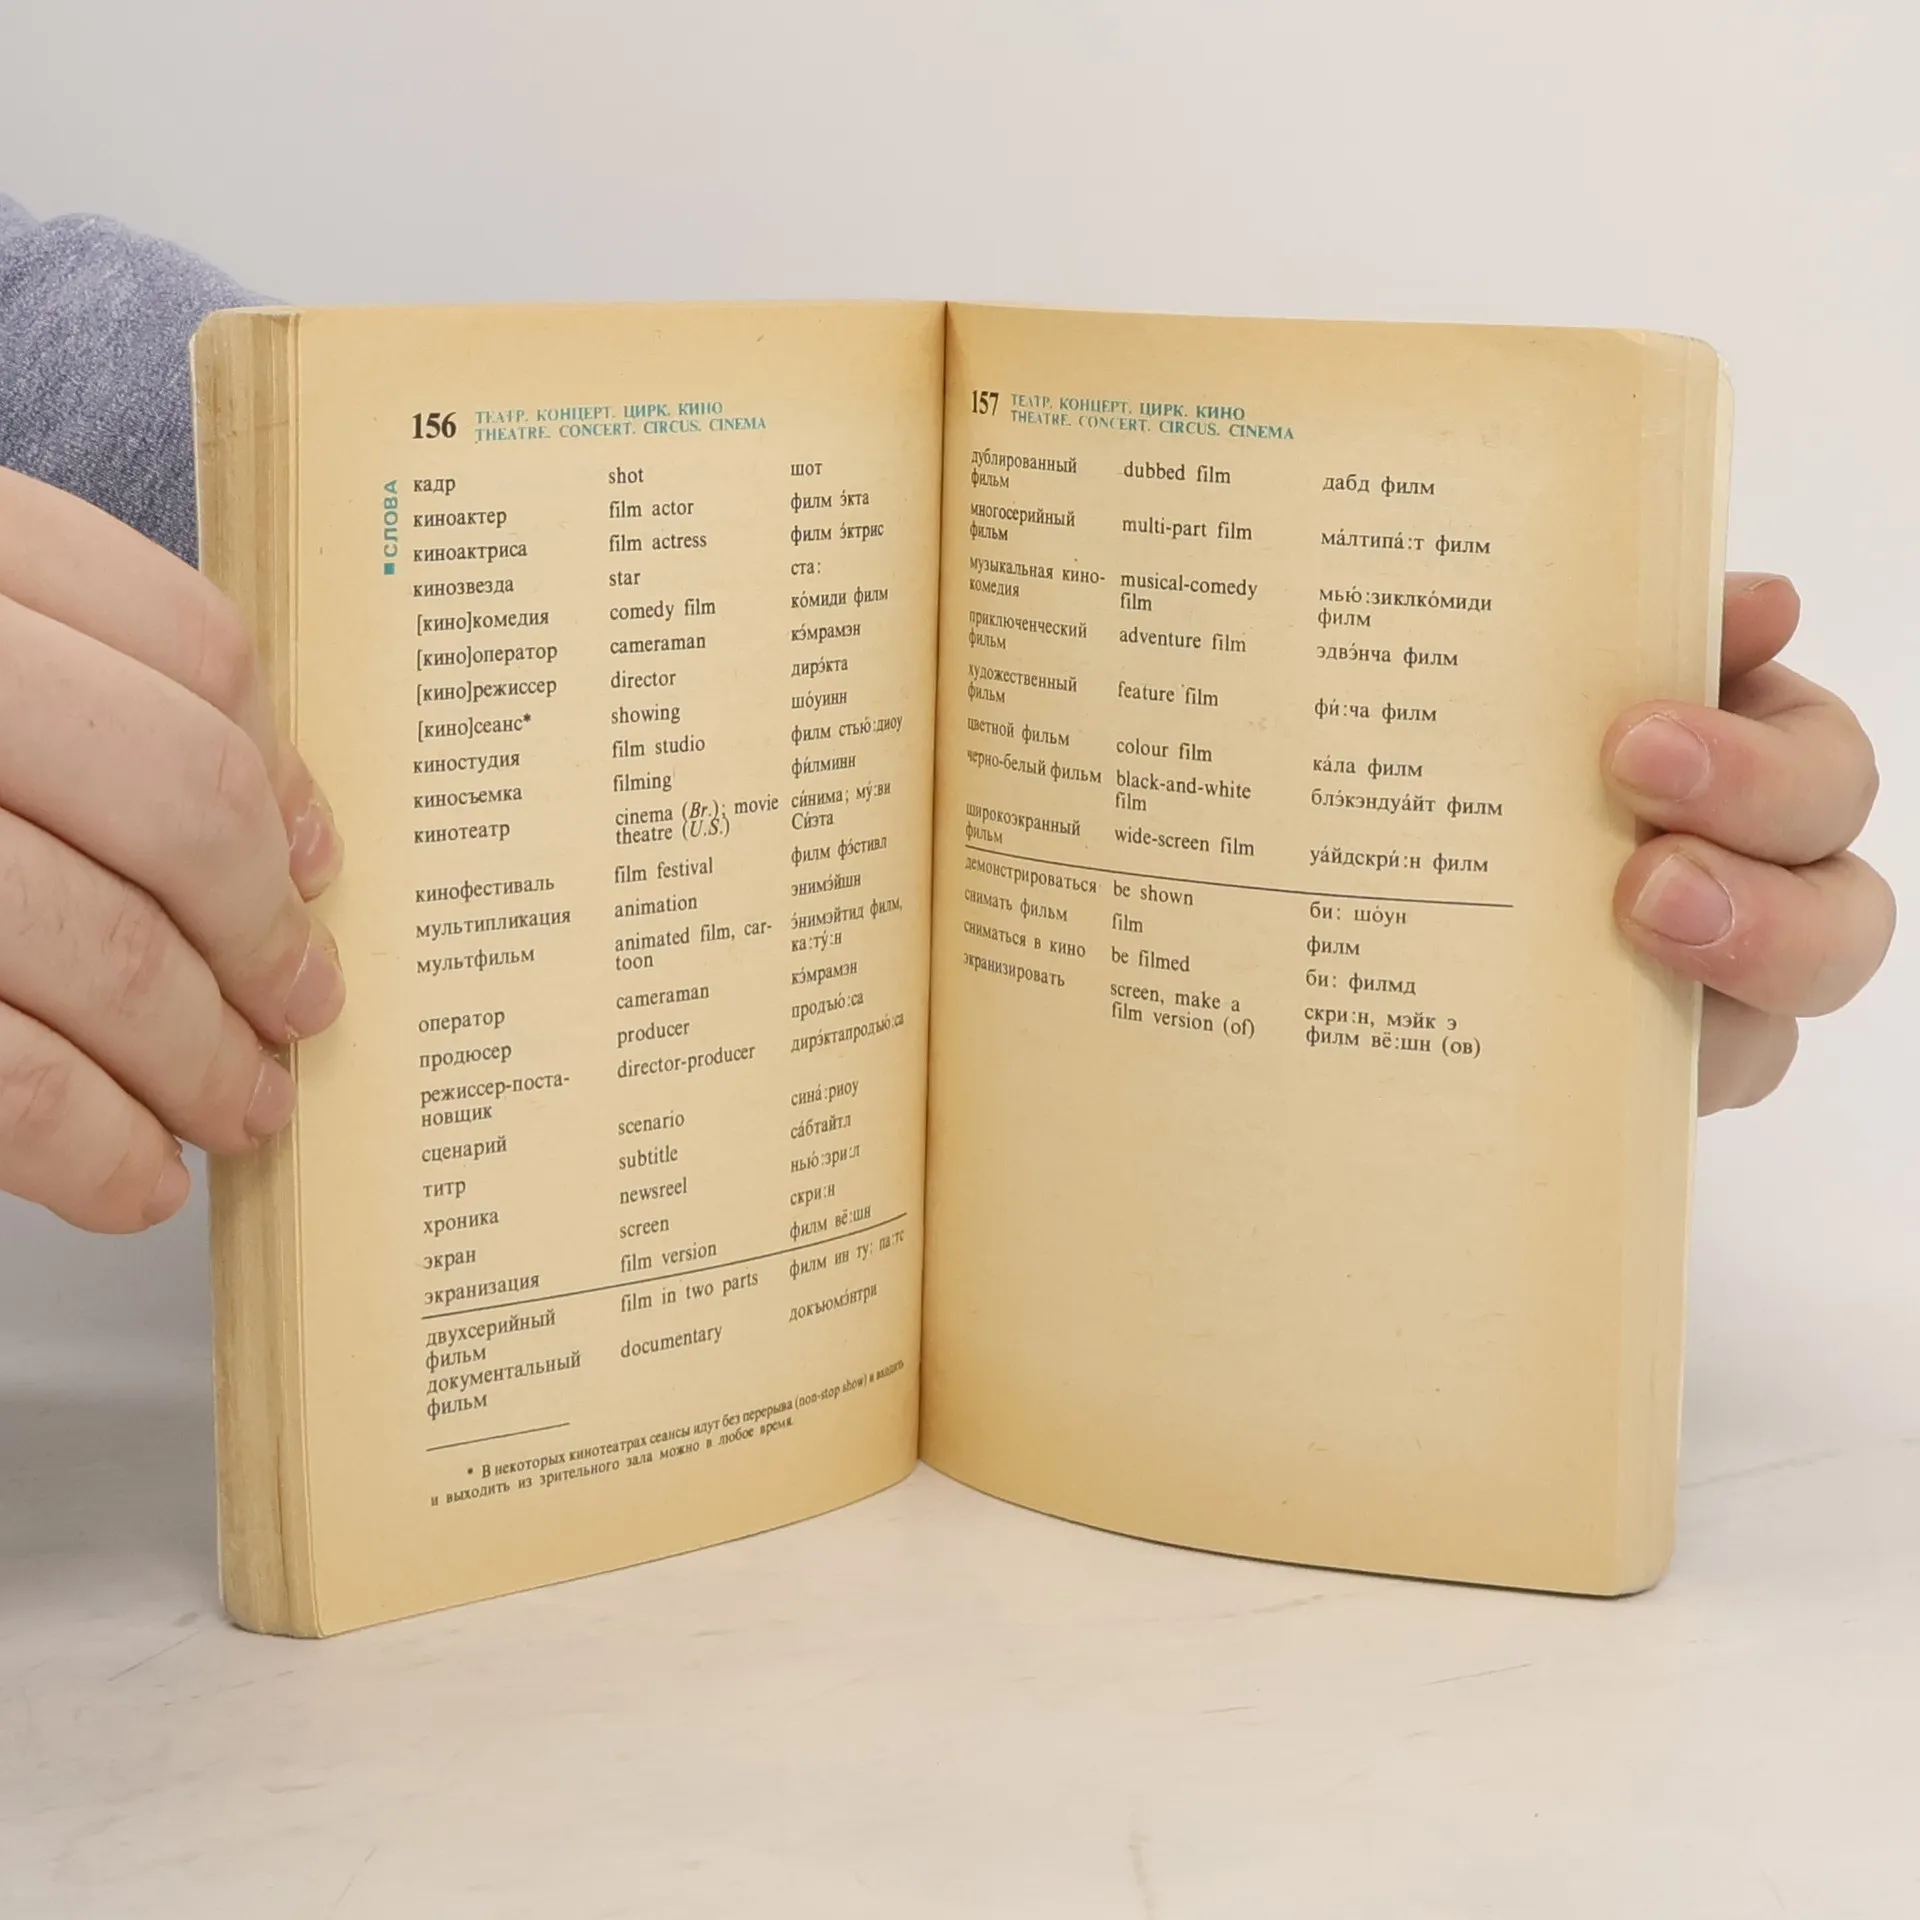 156 ТЕАТР. КОНЦЕРТ. ЦИРК. КИНО
THEATRE. CONCERT. CIRCUS. CINEMA
СЛОВА
кадр shot шот
киноактер film actor филм э́кта
киноактриса film actress филм э́ктрис
кинозвезда star ста:
[кино]комедия comedy film ко́миди филм
[кино]оператор cameraman кэ́мрамэн
[кино]режиссер director дирэ́кта
[кино]сеанс* showing шо́уинн
киностудия film studio филм стью́:диоу
киносъемка filming фи́лминн
кинотеатр cinema (Br.); movie си́нима; му́:ви
theatre (U.S.) Си́эта
кинофестиваль film festival филм фэ́стивл
мультипликация animation энимэ́йшн
мультфильм animated film, car- э́нимэйтид филм,
toon ка:ту́:н
оператор cameraman кэ́мрамэн
продюсер producer продью́:са
режиссер-поста- director-producer дирэ́ктапродью́:са
новщик
сценарий scenario сина́:риоу
титр subtitle са́бтайтл
хроника newsreel нью́:зри:л
экран screen скри:н
экранизация film version филм вё:шн
двухсерийный film in two parts филм ин ту: па:тс
фильм
документальный documentary докъюмэ́нтри
фильм
* В некоторых кинотеатрах сеансы идут без перерыва (non-stop show) и входить
и выходить из зрительного зала можно в любое время.
157 ТЕАТР. КОНЦЕРТ. ЦИРК. КИНО
THEATRE. CONCERT. CIRCUS. CINEMA
дублированный dubbed film дабд филм
фильм
многосерийный multi-part film ма́лтипа́:т филм
фильм
музыкальная кино- musical-comedy мью́:зиклко́миди
комедия film филм
приключенческий adventure film эдвэ́нча филм
фильм
художественный feature film фи́:ча филм
фильм
цветной фильм colour film ка́ла филм
черно-белый фильм black-and-white блэ́кэндуа́йт филм
film
широкоэкранный wide-screen film уа́йдскри́:н филм
фильм
демонстрироваться be shown би: шо́ун
снимать фильм film филм
сниматься в кино be filmed би: филмд
экранизировать screen, make a скри:н, мэйк э
film version (of) филм вё:шн (ов)